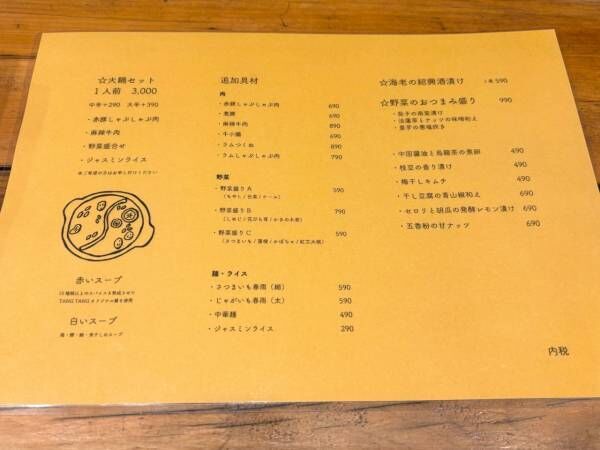 ☆火鍋セット
1人前 3,000
中辛+290 大辛+390
・赤豚しゃぶしゃぶ肉
・麻辣牛肉
・野菜盛合せ
・ジャスミンライス
赤いスープ
TANG TANG オリジナル
白いスープ
追加具材
肉
・赤豚しゃぶしゃぶ肉 690
690
・麻辣牛肉 890
・牛小腸 690
・ラムつくね 890
・ラムしゃぶしゃぶ肉 790
野菜
・野菜盛りA 590
(もやし/白菜/ケール)
・野菜盛りB 790
(しめじ/花びら茸/かきの木茸)
・野菜盛りC 590
(さつまいも/蓮根/かぼちゃ/紅芯大根)
麺・ライス
・さつまいも春雨(細) 590
・じゃがいも春雨(太) 590
・中華麺 490
・ジャスミンライス 290
☆海老の紹興酒漬け 590
☆野菜のおつまみ盛り 990
・茄子の南蛮漬け
・中国醤油と烏龍茶の煮卵 490
・枝豆の香り漬け 490
・梅干しキムチ 490
・干し豆腐の青山椒和え 690
・セロリと胡瓜の発酵レモン漬け 690
・五香粉の甘ナッツ 690
内税